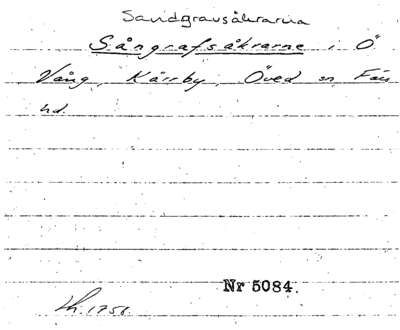 Sandgravsåkrarna
Sångrafsåkrarne i Ö.
Vång, Kärrby, Öved sn, Färs
hd.
Nr 5084.
Lh. 1758.